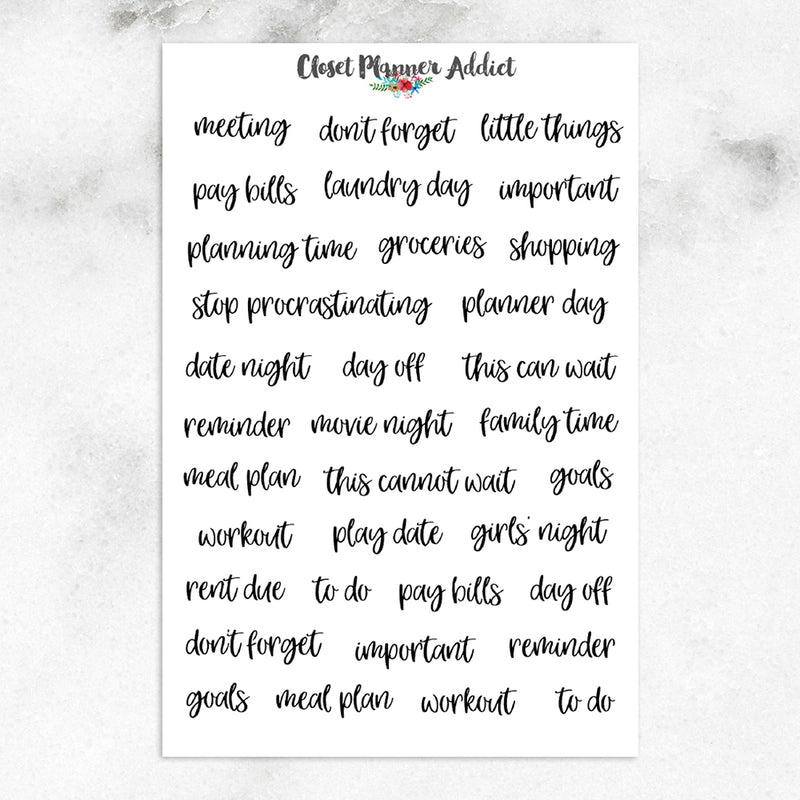 Closet Planner Addict
meeting don't forget little things
pay bills laundry day important
planning time groceries shopping
stop procrastinating planner day
date night day off this can wait
reminder movie night family time
meal plan this cannot wait goals
workout play date girls' night
rent due to do pay bills day off
don't forget important reminder
goals meal plan workout to do